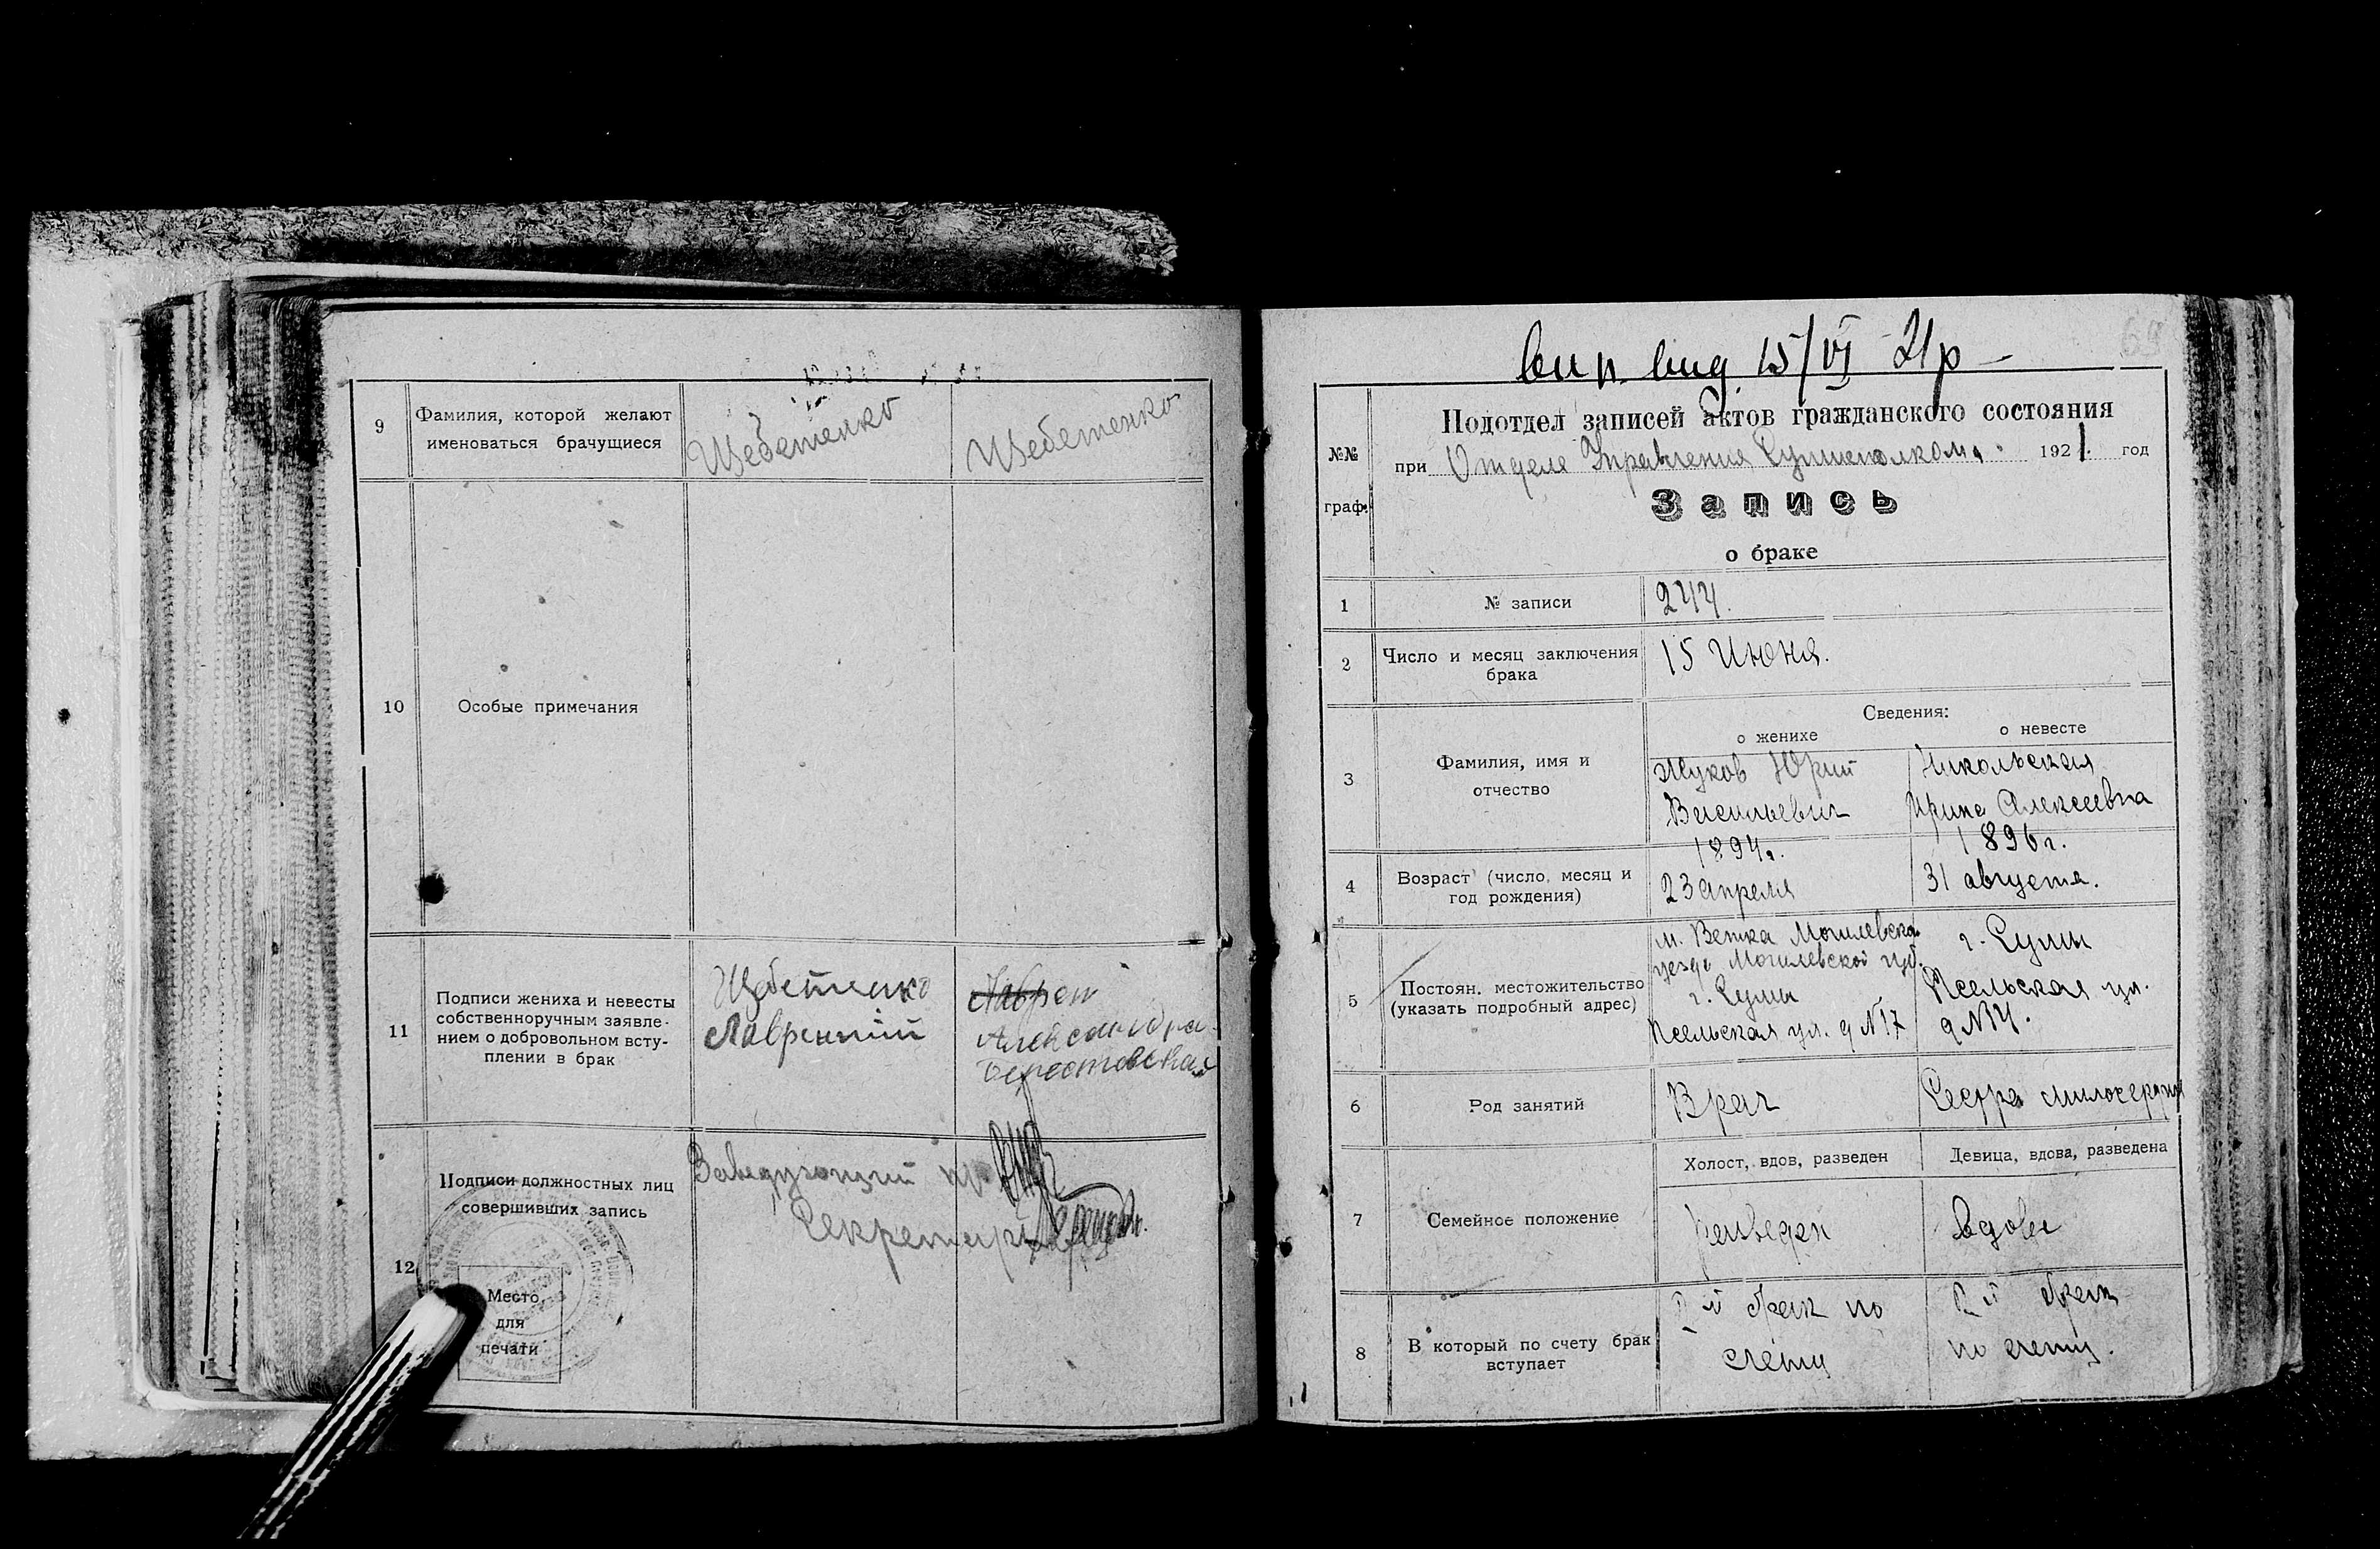 9
Фамилия, которой желают
именоваться брачущиеся
Щебетенко
Щебетенко
10
Особые примечания
11
Подписи жениха и невесты
собственноручным заявле-
нием о добровольном всту-
плении в брак
Щебетенко
Лаврентий
Александра
Берестовская
12
Подписи должностных лиц
совершивших запись
Заведующий
Секретарь
Место
для
печати
вид 15/VI 21р
69
№№
граф.
Подотдел записей актов гражданского состояния
при Отделе Управления 1921. год
Запись
о браке
1
№ записи
244.
2
Число и месяц заключения
брака
15 Июня.
Сведения:
о женихе
о невесте
3
Фамилия, имя и
отчество
Жуков Юрий
Васильевич
Никольская
Ирина Алексеевна
4
Возраст (число, месяц и
год рождения)
1894г.
23 апреля
1896г.
31 августа.
5
Постоян. местожительство
(указать подробный адрес)
м. Ветка Могилевска
уезда Могилевской губ.
г. Сумы
Псельская ул. д №17
г. Сумы
Псельская ул.
д №14.
6
Род занятий
Врач
Сестра милосердия
7
Семейное положение
Холост, вдов, разведен
Девица, вдова, разведена
разведен
Вдова
8
В который по счету брак
вступает
II й брак по
счету
II й брак
по счету.